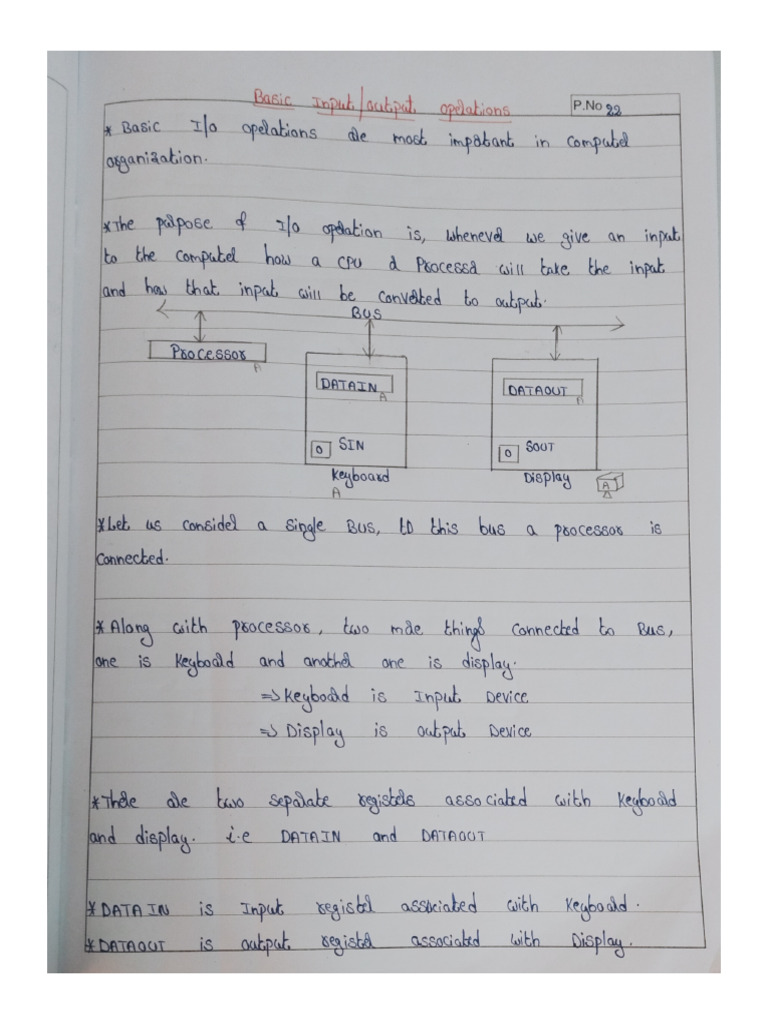 Basic Input/output operations
P.No 22
* Basic I/o operations are most important in computer
organization.
*The purpose of I/o operation is, whenever we give an input
to the computer how a CPU & Processor will take the input
and how that input will be converted to output.
BUS
Processor
A
DATAIN
A
DATAOUT
A
0 SIN
0 SOUT
Keyboard
A
Display
A
*Let us consider a single Bus, to this bus a processor is
connected.
*Along with processor, two more things connected to Bus,
one is Keyboard and another one is display.
=> Keyboard is Input Device
=> Display is output Device
*There are two separate registers associated with Keyboard
and display. i.e DATAIN and DATAOUT
*DATAIN is Input register associated with Keyboard.
*DATAOUT is output register associated with Display.